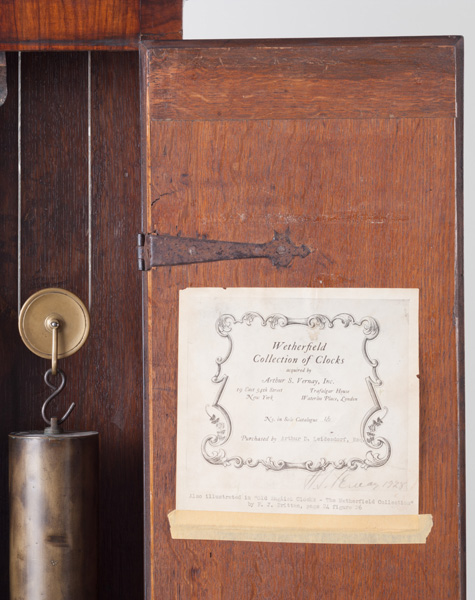 Wetherfield
Collection of Clocks
acquired by
Arthur S. Vernay, Inc.
19 East 54th Street Trafalgar House
New York Waterloo Place, London
No. in this Catalogue
Purchased by Arthur D. Leidesdorf, Esq.
1928
Also illustrated in "Old English Clocks - The Wetherfield Collection"
by F. J. Britten, page 34 figure